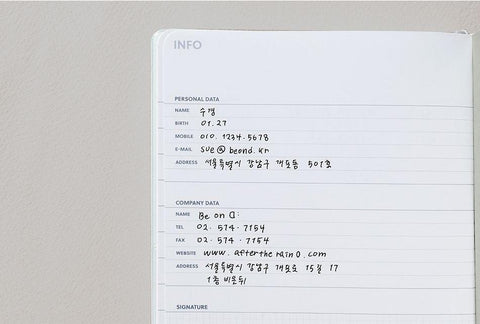 INFO
PERSONAL DATA
NAME 수갱
BIRTH 01. 27
MOBILE 010. 1234 - 5678
E-MAIL sue@beond.kr
ADDRESS 서울특별시 강남구 개포동 501호
COMPANY DATA
NAME Be on D:
TEL 02 - 574 - 7154
FAX 02 - 574 - 7154
WEBSITE www. aftertherain0. com
ADDRESS 서울특별시 강남구 개포로 15길 17
1층 비온뒤
SIGNATURE